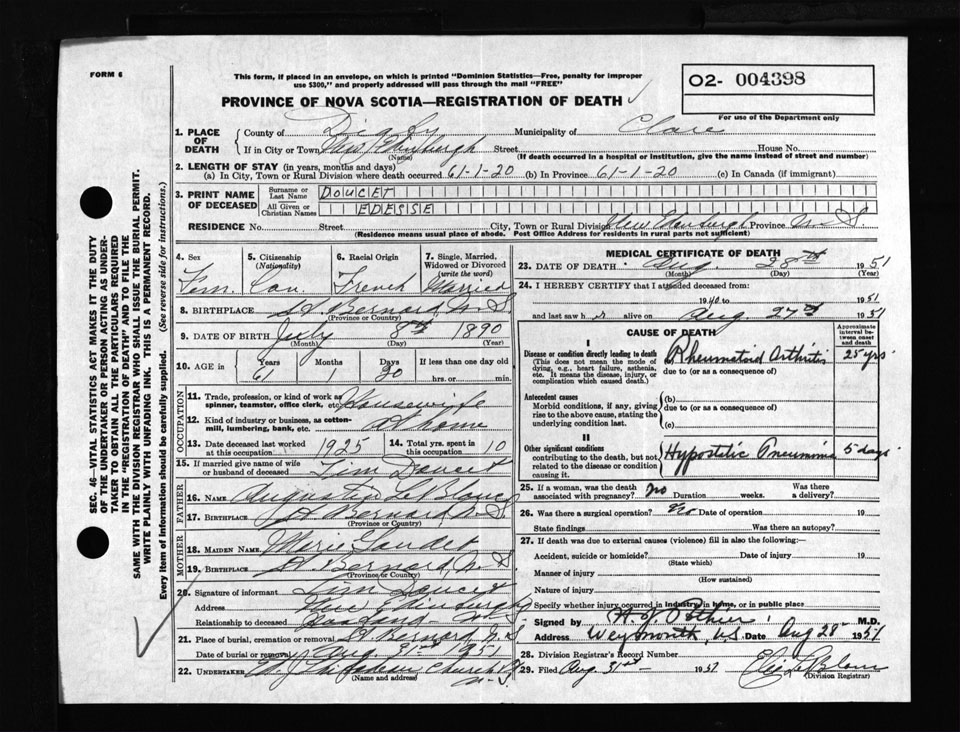 FORM 6
This form, if placed in an envelope, on which is printed "Dominion Statistics—Free, penalty for improper
use $300," and properly addressed will pass through the mail "FREE"
O2- 004398
For use of the Department only
PROVINCE OF NOVA SCOTIA—REGISTRATION OF DEATH
1. PLACE OF DEATH
County of Digby Municipality of Clare
If in City or Town New Edinburgh Street House No.
(Name) (If death occurred in a hospital or institution, give the name instead of street and number)
2. LENGTH OF STAY (in years, months and days)
(a) In City, Town or Rural Division where death occurred 61-1-20 (b) In Province 61-1-20 (c) In Canada (if immigrant)
3. PRINT NAME OF DECEASED
Surname or Last Name DOUCET
All Given or Christian Names EDESSE
RESIDENCE No. Street City, Town or Rural Division New Edinburgh Province N.S.
(Residence means usual place of abode. Post Office Address for residents in rural parts not sufficient)
4. Sex Fem.
5. Citizenship (Nationality) Can.
6. Racial Origin French
7. Single, Married, Widowed or Divorced (write the word) Married
8. BIRTHPLACE St. Bernard, N.S.
(Province or Country)
9. DATE OF BIRTH July 8th 1890
(Month) (Day) (Year)
10. AGE in Years 61 Months 1 Days 20 If less than one day old
hrs. or min.
OCCUPATION
11. Trade, profession, or kind of work as spinner, teamster, office clerk, etc. Housewife
12. Kind of industry or business, as cotton-mill, lumbering, bank, etc. at home
13. Date deceased last worked at this occupation 1925
14. Total yrs. spent in this occupation 10
15. If married give name of wife or husband of deceased Tim Doucet
FATHER
16. NAME Augustin LeBlanc
17. BIRTHPLACE St. Bernard, N.S.
(Province or Country)
MOTHER
18. MAIDEN NAME Marie Gaudet
19. BIRTHPLACE St. Bernard, N.S.
(Province or Country)
20. Signature of informant Tim Doucet
Address New Edinburgh N.S.
Relationship to deceased Husband
21. Place of burial, cremation or removal St. Bernard N.S.
Date of burial or removal Aug. 31st 1951
22. UNDERTAKER Church Pt.
(Name and address) N.S.
MEDICAL CERTIFICATE OF DEATH
23. DATE OF DEATH Aug. 28th 1951
(Month) (Day) (Year)
24. I HEREBY CERTIFY that I attended deceased from:
1940 to 1951
and last saw h er alive on Aug. 27th 1951
CAUSE OF DEATH
Approximate interval between onset and death
I
Disease or condition directly leading to death
(This does not mean the mode of dying, e.g., heart failure, asthenia, etc. It means the disease, injury, or complication which caused death.)
Rheumatoid Arthritis 25 yrs.
due to (or as a consequence of)
Antecedent causes
Morbid conditions, if any, giving rise to the above cause, stating the underlying condition last.
(b)
due to (or as a consequence of)
(c)
II
Other significant conditions
contributing to the death, but not related to the disease or condition causing it.
Hypostatic Pneumonia 5 days
25. If a woman, was the death associated with pregnancy? No Duration weeks. Was there a delivery?
26. Was there a surgical operation? No Date of operation 19
State findings Was there an autopsy?
27. If death was due to external causes (violence) fill in also the following:—
Accident, suicide or homicide? Date of injury 19
(State which)
Manner of injury
(How sustained)
Nature of injury
Specify whether injury occurred in industry, in home, or in public place
Signed by Pothier M.D.
Address Weymouth, N.S. Date Aug 28th 1951
28. Division Registrar's Record Number
29. Filed Aug. 31st 1951
(Division Registrar)
SEC. 46—VITAL STATISTICS ACT MAKES IT THE DUTY
OF THE UNDERTAKER OR PERSON ACTING AS UNDER-
TAKER TO OBTAIN ALL THE PARTICULARS REQUIRED
IN THE "REGISTRATION OF DEATH" AND TO FILE THE
SAME WITH THE DIVISION REGISTRAR WHO SHALL ISSUE THE BURIAL PERMIT.
WRITE PLAINLY WITH UNFADING INK. THIS IS A PERMANENT RECORD.
Every item of information should be carefully supplied. (See reverse side for instructions.)